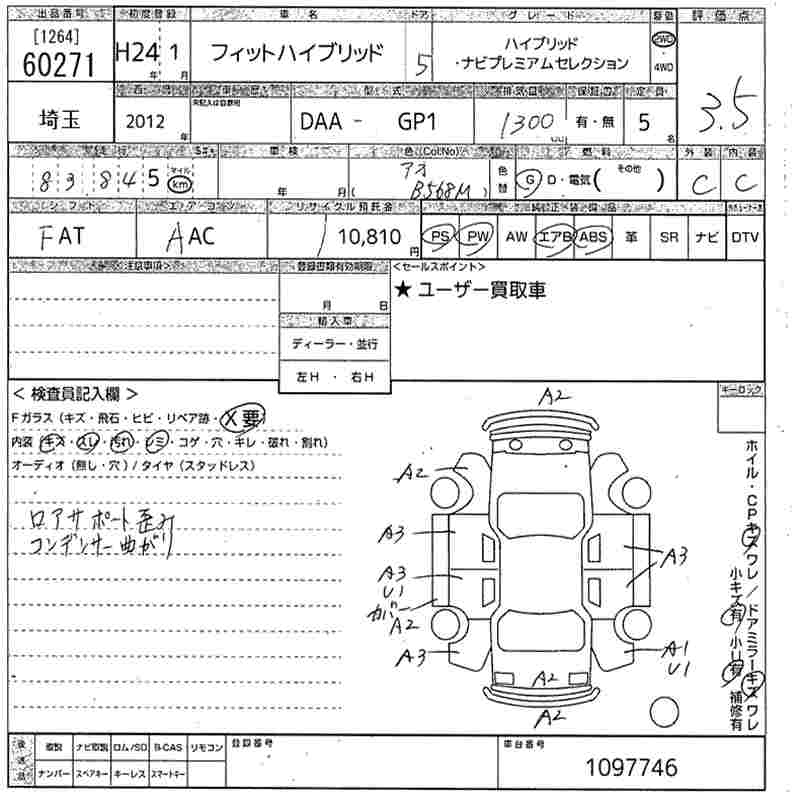 出品番号 初度登録 車名 ドア グレード 駆動 評価点
[1264]
60271
H24 1
年 月
フィットハイブリッド
5
ハイブリッド
・ナビプレミアムセレクション
2WD
・
4WD
3.5
埼玉
西暦
2012 年
車歴
未記入は自家用
型式
DAA - GP1
排気量
1300
CC
保証書
有・無
定員
5 名
走行
8 3 8 4 5 マイル km
車検
年 月
色(Col.No)
アオ
( B568M )
色替
燃料
G D・電気( その他 )
外装 内装
C C
シフト
F AT
エアコン
A AC
リサイクル預託金
10,810 円
純正装備品
PS PW AW エアB ABS 革 SR ナビ DTV
<注意事項>
登録書類有効期限
月 日
輸入車
ディーラー・並行
左H ・ 右H
<セールスポイント>
★ ユーザー買取車
< 検査員記入欄 >
Fガラス(キズ・飛石・ヒビ・リペア跡・X要)
内装(キズ・スレ・汚れ・シミ・コゲ・穴・キレ・破れ・割れ)
オーディオ(無し・穴)/タイヤ(スタッドレス)
ロアサポート歪み
コンデンサー曲がり
キーロック
A2
A2
A3
A3
A3
U1
カバー
A2
A3
A1
U1
A2
A2
ホイル・CPキズワレ/ドアミラーキズワレ
小キズ有/小U有 補修有
後送品
取説 ナビ取説 ロム/SD B-CAS リモコン
ナンバー スペアキー キーレス スマートキー
登録番号
車台番号
1097746